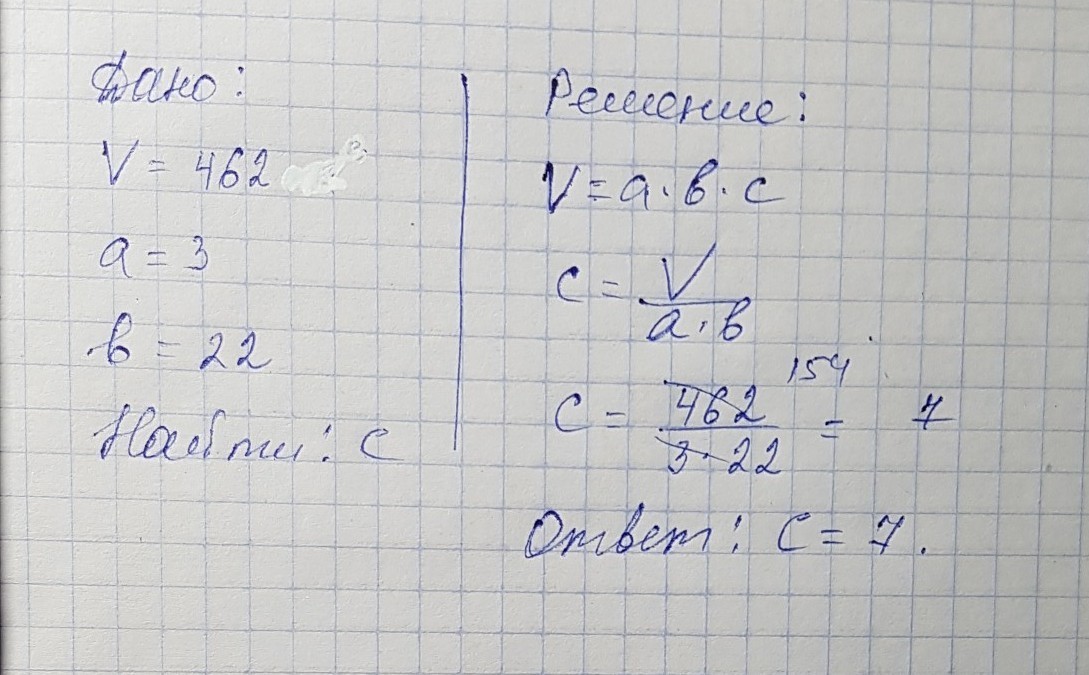 Дано:
V = 462
a = 3
в = 22
Найти: c
Решение:
V = a · в · c
c = V / a · в
154
c = 462 / 3 · 22 = 7
Ответ: c = 7.